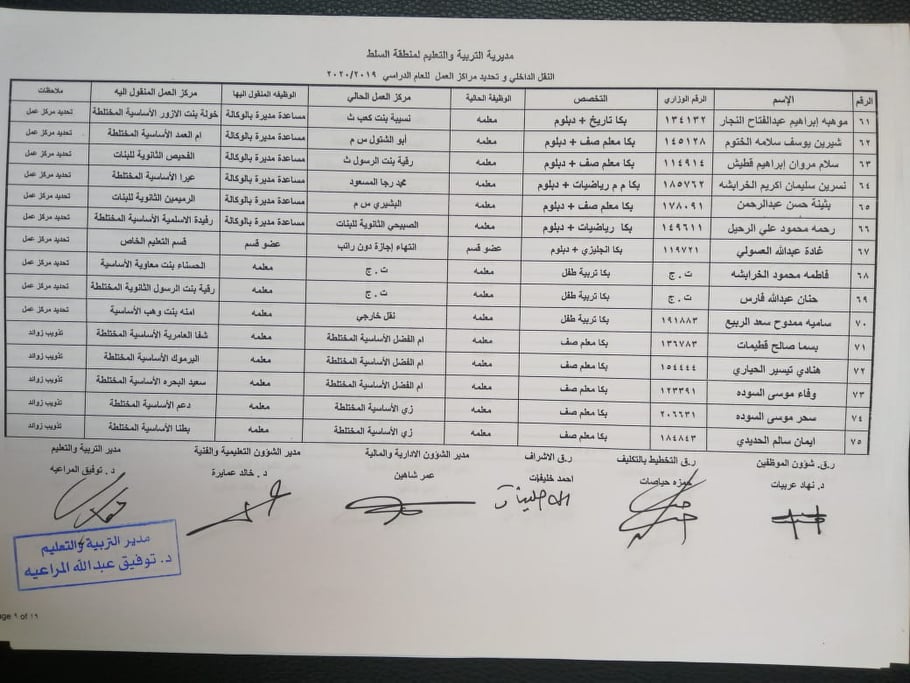 مديرية التربية والتعليم لمنطقة السلط
النقل الداخلي و تحديد مراكز العمل للعام الدراسي ٢٠٢٠/٢٠١٩
الرقم الإسم الرقم الوزاري التخصص الوظيفة الحالية مركز العمل الحالي الوظيفه المنقول اليها مركز العمل المنقول اليه ملاحظات
٦١ موهبه إبراهيم عبدالفتاح النجار ١٣٤١٣٢ بكا تاريخ + دبلوم معلمه نسيبة بنت كعب ث مساعدة مديرة بالوكالة خولة بنت الازور الأساسية المختلطة تحديد مركز عمل
٦٢ شيرين يوسف سلامه الختوم ١٤٥١٢٨ بكا معلم صف + دبلوم معلمه أبو الشتول س م مساعدة مديرة بالوكالة ام العمد الأساسية المختلطة تحديد مركز عمل
٦٣ سلام مروان إبراهيم قطيش ١١٤٩١٤ بكا معلم صف + دبلوم معلمه رقية بنت الرسول ث مساعدة مديرة بالوكالة الفحيص الثانوية للبنات تحديد مركز عمل
٦٤ نسرين سليمان اكريم الخرابشه ١٨٥٧٦٢ بكا م م رياضيات + دبلوم معلمه محمد رجا المسعود مساعدة مديرة بالوكالة عيرا الأساسية المختلطة تحديد مركز عمل
٦٥ بثينة حسن عبدالرحمن ١٧٨٠٩١ بكا معلم صف + دبلوم معلمه البشيري س م مساعدة مديرة بالوكالة الرميمين الثانوية للبنات تحديد مركز عمل
٦٦ رحمه محمود علي الرحيل ١٤٩٦١١ بكا رياضيات + دبلوم معلمه الصبيحي الثانوية للبنات مساعدة مديرة بالوكالة رفيدة الاسلمية الأساسية المختلطة تحديد مركز عمل
٦٧ غادة عبدالله العسولي ١١٩٧٢١ بكا انجليزي + دبلوم عضو قسم انتهاء إجازة دون راتب عضو قسم قسم التعليم الخاص تحديد مركز عمل
٦٨ فاطمه محمود الخرابشه ت . ج بكا تربية طفل معلمه ت . ج معلمه الحسناء بنت معاوية الأساسية تحديد مركز عمل
٦٩ حنان عبدالله فارس ت . ج بكا تربية طفل معلمه ت . ج معلمه رقية بنت الرسول الثانوية المختلطة تحديد مركز عمل
٧٠ ساميه ممدوح سعد الربيع ١٩١٨٨٣ بكا تربية طفل معلمه نقل خارجي معلمه امنه بنت وهب الأساسية تحديد مركز عمل
٧١ بسما صالح قطيمات ١٣٦٧٨٣ بكا معلم صف معلمه ام الفضل الأساسية المختلطة معلمه شفا العامرية الأساسية المختلطة تذويب زوائد
٧٢ هنادي تيسير الحياري ١٥٤٤٤٤ بكا معلم صف معلمه ام الفضل الأساسية المختلطة معلمه اليرموك الأساسية المختلطة تذويب زوائد
٧٣ وفاء موسى السوده ١٢٣٣٩١ بكا معلم صف معلمه ام الفضل الأساسية المختلطة معلمه سعيد البحره الأساسية المختلطة تذويب زوائد
٧٤ سحر موسى السوده ٢٠٦٦٣١ بكا معلم صف معلمه زي الأساسية المختلطة معلمه دعم الأساسية المختلطة تذويب زوائد
٧٥ ايمان سالم الحديدي ١٨٤٨٤٣ بكا معلم صف معلمه زي الأساسية المختلطة معلمه بطنا الأساسية المختلطة تذويب زوائد
ر.ق. شؤون الموظفين ر.ق التخطيط بالتكليف ر.ق الاشراف مدير الشؤون الادارية والمالية مدير الشؤون التعليمية والفنية مدير التربية والتعليم
د. نهاد عربيات حمزه حياصات احمد خليفات عمر شاهين د. خالد عمايرة د. توفيق المراعيه
مدير التربية والتعليم
د. توفيق عبدالله المراعيه
age ٩ of ١٩